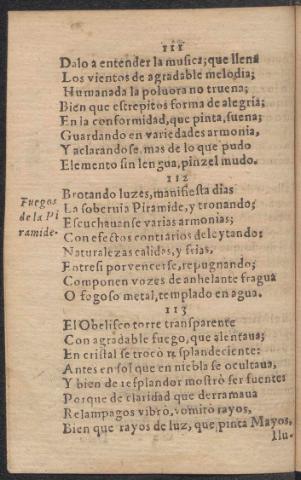 111
Dalo a entender la musica; que llena
Los vientos de agradable melodia;
Humanada la poluora no truena;
Bien que estrepitos forma de alegria;
En la conformidad, que pinta, suena;
Guardando en variedades armonia,
Y aclarandose, mas de lo que pudo
Elemento sin lengua, pinzel mudo.
112
Brotando luzes, manifiesta dias
Fuegos de la Piramide.
La soberuia Piramide, y tronando;
Escuchauanse varias armonias;
Con efectos contrarios deleytando:
Naturalezas calidas, y frias,
Entresi por vencerse, repugnando;
Componen vozes de anhelante fragua
O fogoso metal, templado en agua.
113
El Obelisco torre transparente
Con agradable fuego, que alentaua;
En cristal se trocò resplandeciente:
Antes en sol que en niebla se ocultaua,
Y bien de resplandor mostrò ser fuentes
Porque de claridad que derramaua
Relampagos vibrò, vomitò rayos,
Bien que rayos de luz, que pinta Mayos,
Ilu-